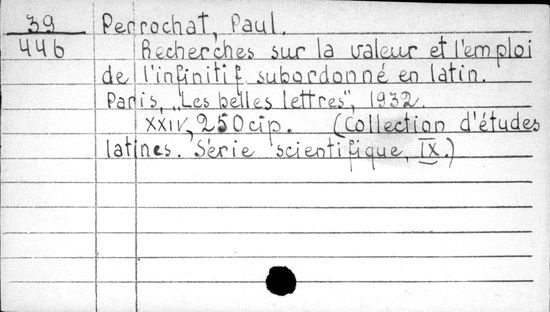 39 Perrochat, Paul.
446 Recherches sur la valeur et l'emploi
de l'infinitif subordonné en latin.
Paris, „Les belles lettres", 1932.
XXIV, 250 cip. (Collection d'études
latines. Série scientifique, IX.)